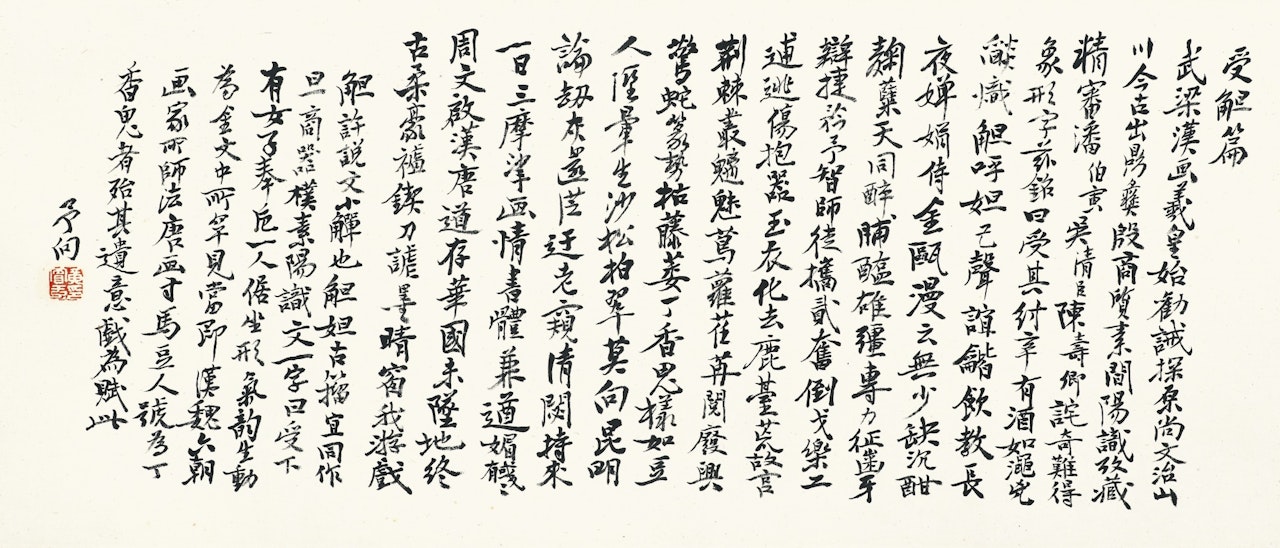 受觛篇
武梁漢画羲皇始勸誡探原尚文治山
川今古出鼎彝殷商質素間陽識攷藏
精審潘伯寅吳清陳壽卿詫奇難得
象形字茲銘曰受其紂辛有酒如澠兕
觥熾觛呼妲己聲誼龤飲教長
夜嬋娟侍金甌漫云無少缺沉酣
麴蘗天同醉脯醢雄彊專力征齒牙
辯捷矜予智師徒攜貳奮倒戈樂工
逋逃傷抱器玉衣化去鹿臺荒故宮
荊棘叢魑魅蔦蘿荏苒閱廢興
驚蛇篆勢枯藤萎丁香鬼樣如豆
人陘暈生沙松柏翠莫向昆明
論劫灰還從迂老窺清閟持來
一日三摩挲画情書體兼遒媚
周文啟漢唐道存華國未墜地終
古柔豪鍥刀謔墨晴窗我游戲
觛許説文小觶也觛妲古籀宜同作
旦商器樸素陽識文一字曰受下
有女子奉卮一人倨坐形氣韵生動
為金文中所罕見當即漢魏六朝
画家所師法唐画寸馬豆人號為丁
香鬼者殆其遺意戲為賦此
予向